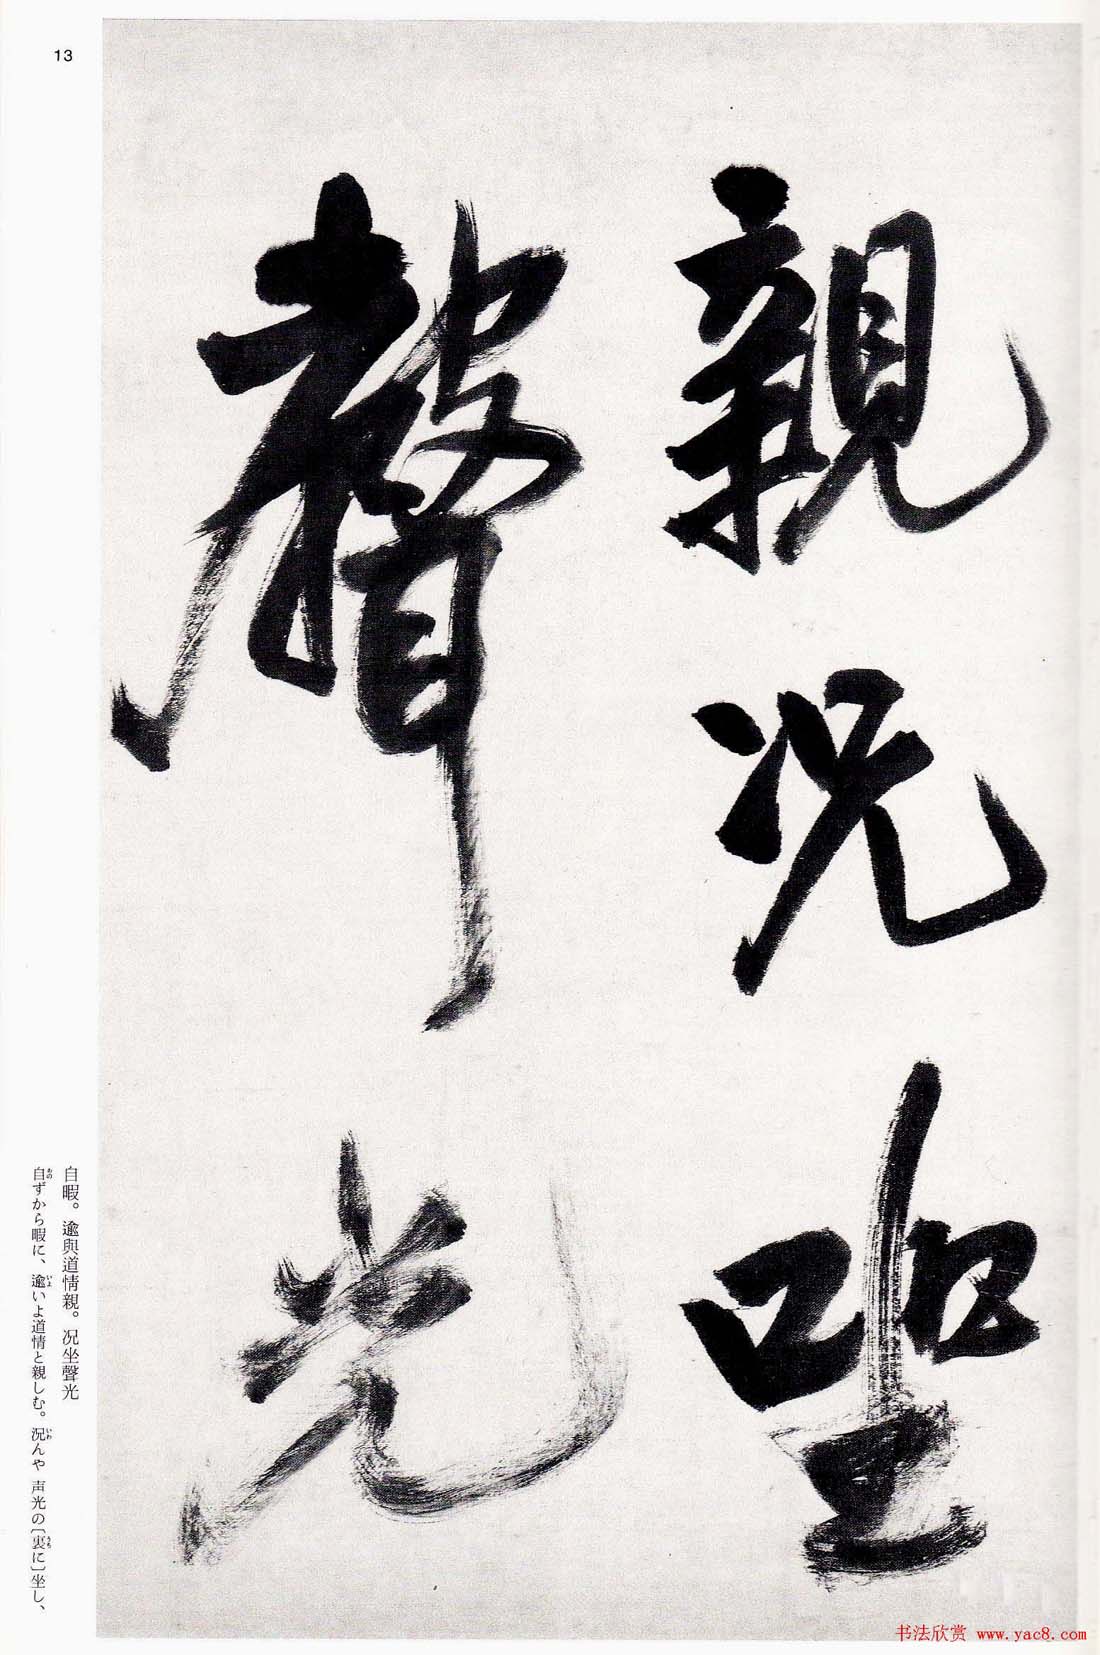 13
親況坐
聲光
自暇。逾與道情親。況坐聲光
自ずから暇に、逾いよ道情と親しむ。況んや 声光の〔裏に〕坐し、
书法欣赏 www.yac8.com